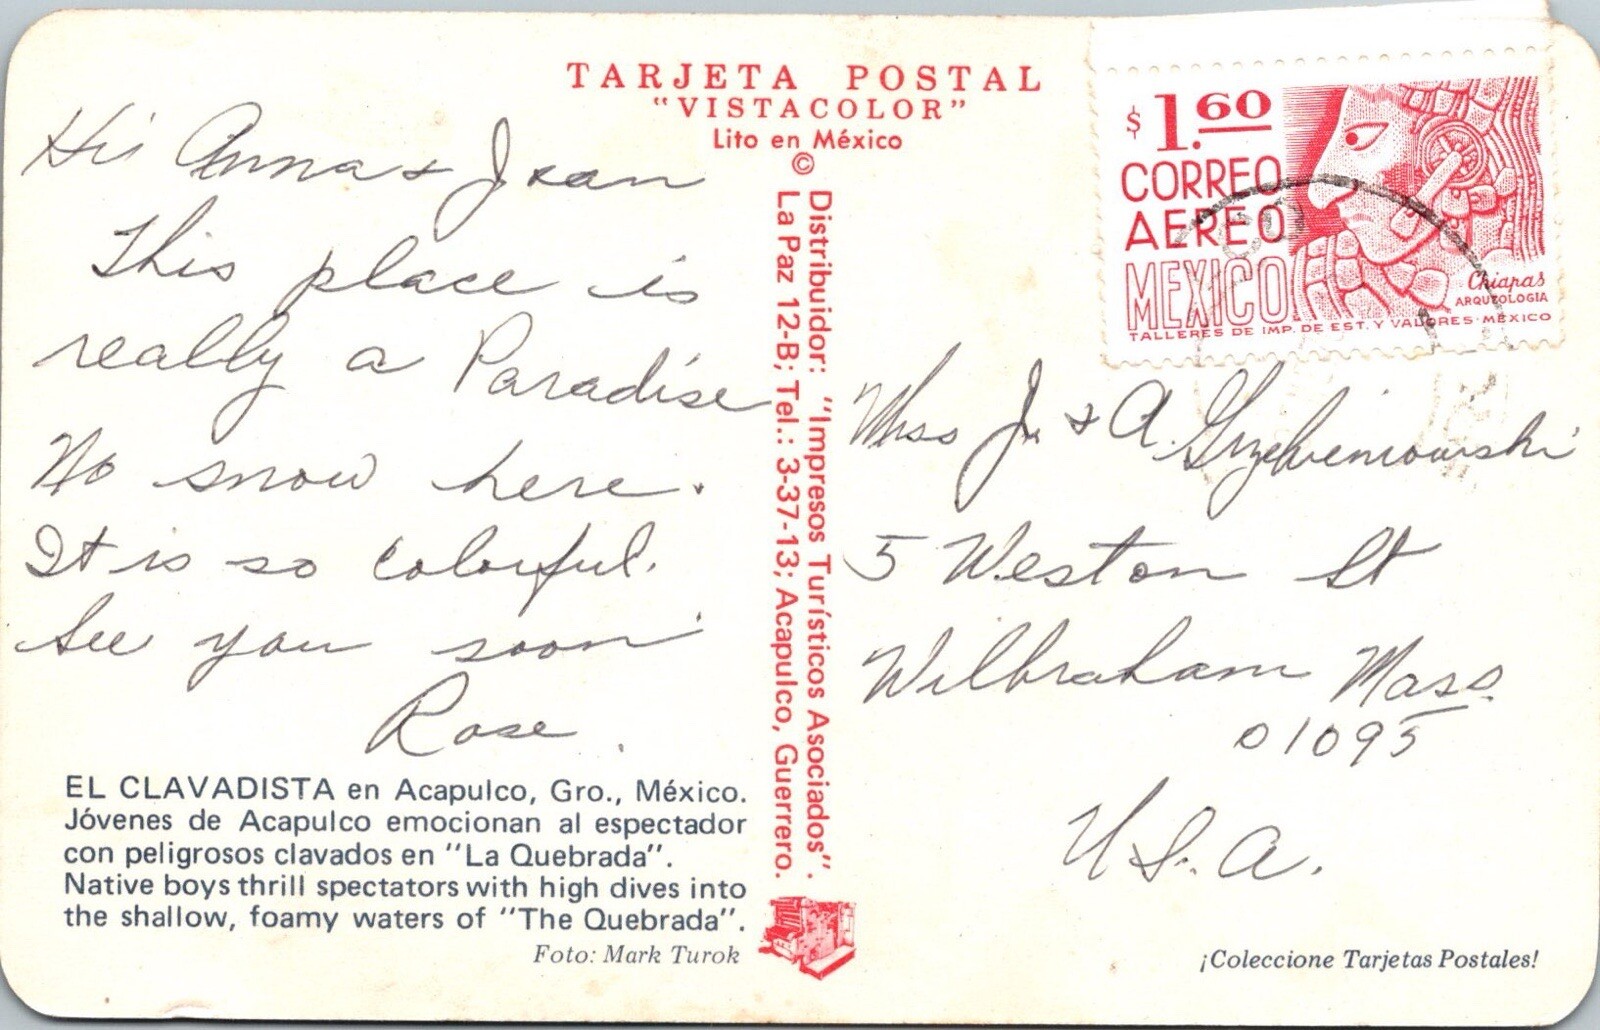 TARJETA POSTAL
"VISTACOLOR"
Lito en México
©
Distribuidor: "Impresos Turísticos Asociados".
La Paz 12-B; Tel.: 3-37-13; Acapulco, Guerrero.
Hi Anna & Jean
This place is
really a Paradise
No snow here.
It is so colorful.
See you soon
Rose.
EL CLAVADISTA en Acapulco, Gro., México.
Jóvenes de Acapulco emocionan al espectador
con peligrosos clavados en "La Quebrada".
Native boys thrill spectators with high dives into
the shallow, foamy waters of "The Quebrada".
Foto: Mark Turok
$1.60
CORREO
AEREO
MEXICO
Chiapas
ARQUEOLOGIA
TALLERES DE IMP. DE EST. Y VALORES-MEXICO
Miss J. & A. Grzebieniowski
5 Weston St
Wilbraham Mass.
01095
U.S.A.
¡Coleccione Tarjetas Postales!